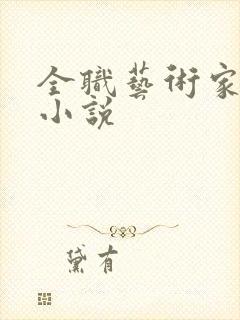 全職藝術家
小說
黛有